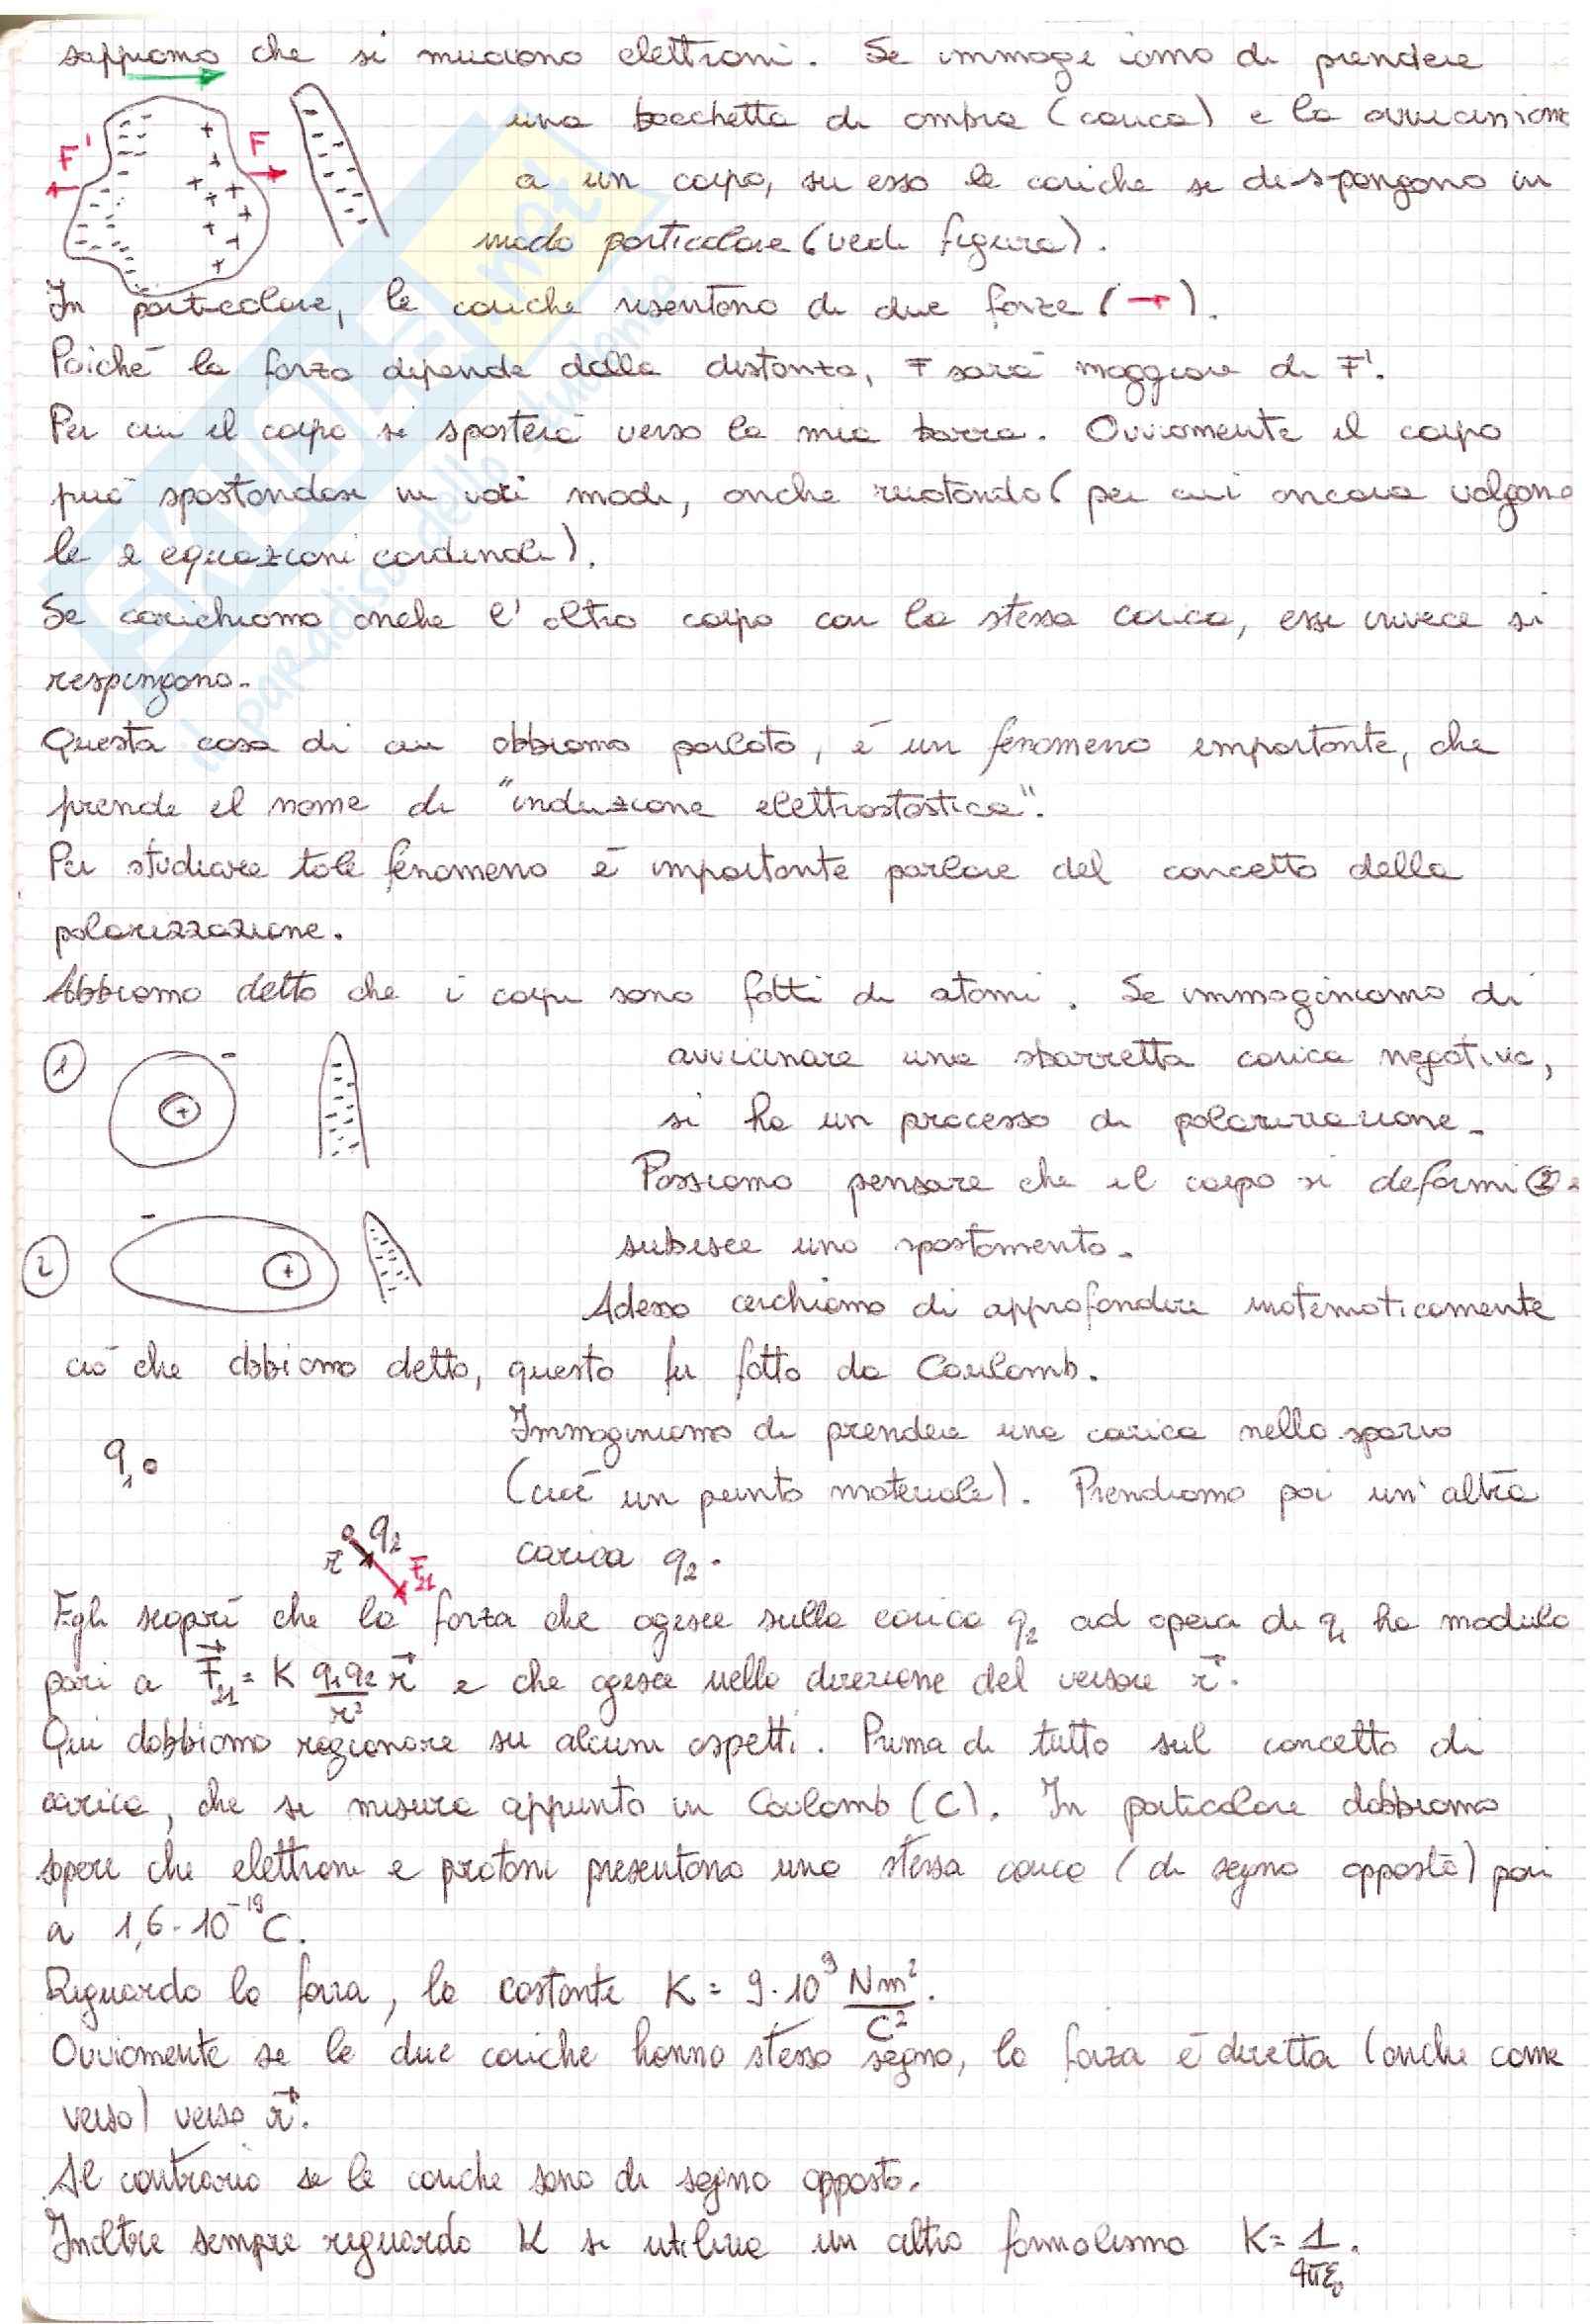 sappiamo che si muovono elettroni. Se immagi iamo di prendere
una bacchetta di ambra (carica) e la avviciniamo
a un corpo, su esso le cariche si dispongono in
modo particolare (vedi figura).
F' F
In particolare, le cariche risentono di due forze (→).
Poiché la forza dipende dalla distanza, F sarà maggiore di F'.
Per cui il corpo si sposterà verso la mia barra. Ovviamente il corpo
può spostandosi in vari modi, anche ruotando (per cui ancora valgono
le 2 equazioni cardinali).
Se carichiamo anche l'altro corpo con la stessa carica, essi invece si
respingono.
Questa cosa di cui abbiamo parlato, è un fenomeno importante, che
prende il nome di "induzione elettrostatica".
Per studiare tale fenomeno è importante parlare del concetto della
polarizzazione.
Abbiamo detto che i corpi sono fatti di atomi. Se immaginiamo di
① - + avvicinare una sbarretta carica negativa,
si ha un processo di polarizzazione.
Possiamo pensare che il corpo si deformi ② e
② - + subisce uno spostamento.
Adesso cerchiamo di approfondire matematicamente
ciò che abbiamo detto, questo fu fatto da Coulomb.
Immaginiamo di prendere una carica nello spazio
q₁ (cioè un punto materiale). Prendiamo poi un'altra
r q₂ F₂₁ carica q₂.
Egli scoprì che la forza che agisce sulla carica q₂ ad opera di q₁ ha modulo
pari a F⃗₂₁ = K q₁q₂/r² r⃗ e che agisce nella direzione del versore r⃗.
Qui dobbiamo ragionare su alcuni aspetti. Prima di tutto sul concetto di
carica, che si misura appunto in Coulomb (C). In particolare dobbiamo
sapere che elettroni e protoni presentano una stessa carica (di segno opposto) pari
a 1,6·10⁻¹⁹ C.
Riguardo la forza, la costante K = 9·10⁹ Nm²/C².
Ovviamente se le due cariche hanno stesso segno, la forza è diretta (anche come
verso) verso r⃗.
Al contrario se le cariche sono di segno opposto.
Inoltre sempre riguardo K si utilizza un altro formalismo K = 1/4πε₀.
il paradiso dello studente